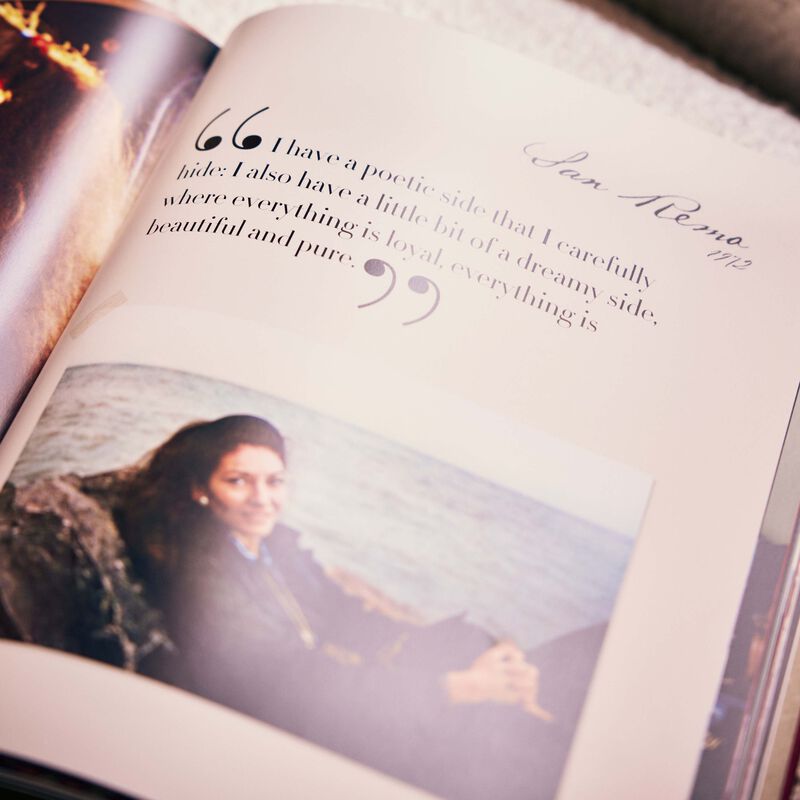 “ I have a poetic side that I carefully
hide: I also have a little bit of a dreamy side,
where everything is loyal, everything is
beautiful and pure. ”
San Remo
1972